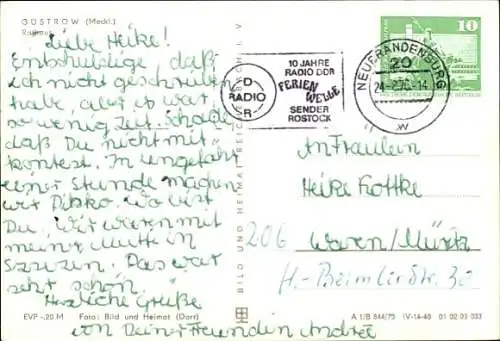 GÜSTROW (Meckl.)
Rathaus
Liebe Heike!
Entschuldige, daß
ich nicht geschrieben
habe, aber es war
so wenig Zeit. Schade
daß Du nicht mit
konntest. In ungefähr
einer Stunde machen
wir Disko. Wo bist
Du. Wir waren mit
meiner Mutti in
Szczezin. Das war
sehr schön.
Herzliche Grüße
von Deiner Freundin Andrea
EVP -,20 M Foto: Bild und Heimat (Darr)
BILD UND HEIMAT REICHENBACH I. V
RADIO
DDR
10 JAHRE
RADIO DDR
FERIEN
WELLE
SENDER
ROSTOCK
NEUBRANDENBURG
20
w
10
An Fräulein
Heike Kottke
206 Waren/Müritz
H.-Beimler Str. 30
A 1/B 844/75 (V-14-48) 01 02 03 033